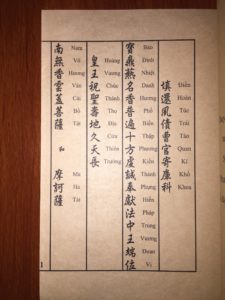 填還夙債曹官寄庫科
Điền Hoàn Túc Trái Tào Quan Kí Khố Khoa
寶鼎爇名香普遍十方虔誠奉獻法中王端位
Bảo Đỉnh Nhiệt Danh Hương Phổ Biến Thập Phương Kiền Thành Phụng Hiến Pháp Trung Vương Đoan Vị
皇王祝聖壽地久天長
Hoàng Vương Chúc Thánh Thọ Địa Cửu Thiên Trường
南無香雲蓋菩薩 和 摩訶薩
Nam Vô Hương Vân Cái Bồ Tát Ma Ha Tát
1